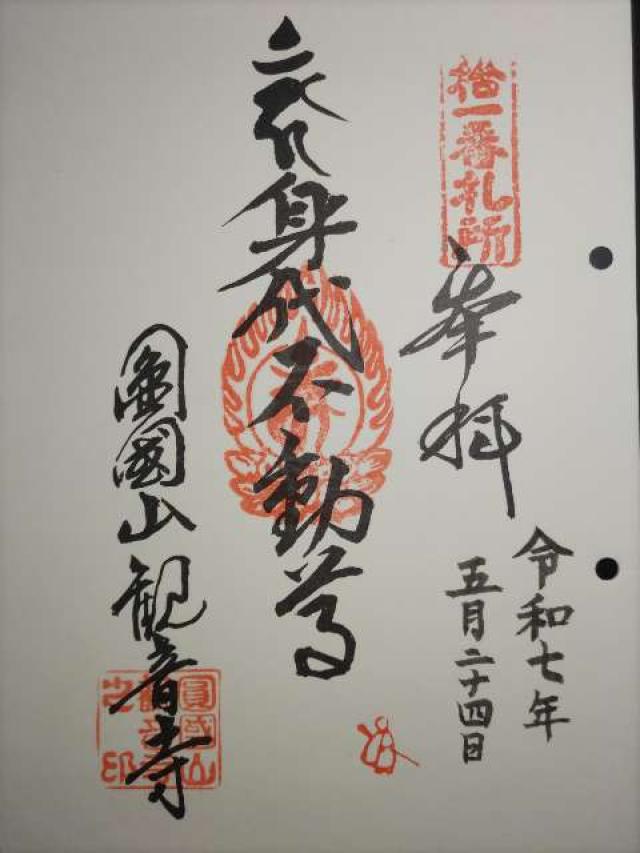 拾一番札所
奉拝
令和七年
五月二十四日
身代不動尊
圓國山観音寺
圓國山
観音寺
之印